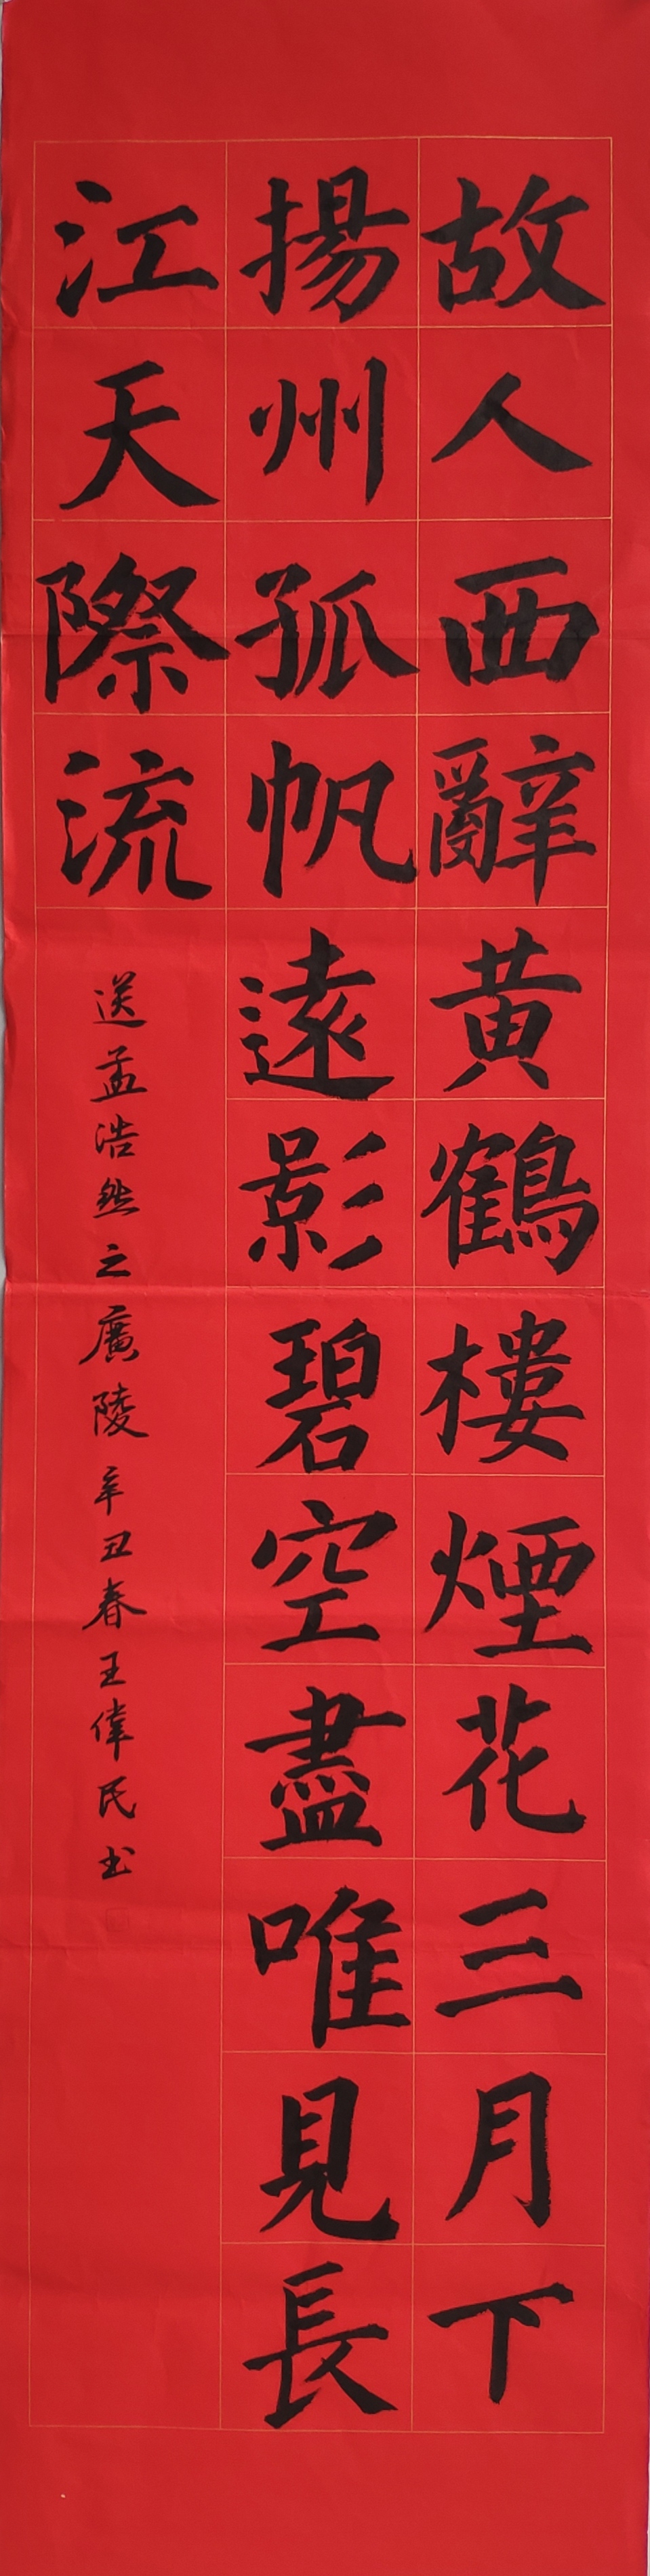 故人西辭黄鶴樓煙花三月下
揚州孤帆遠影碧空盡唯見長
江天際流
送孟浩然之廣陵辛丑春王偉民书